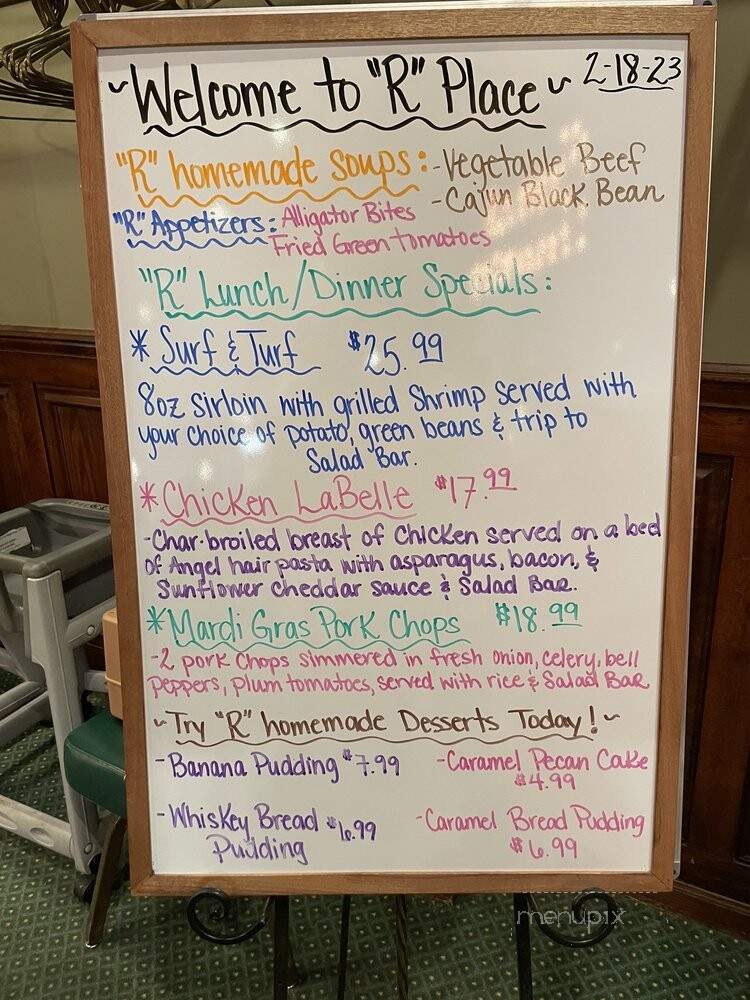 ~Welcome to "R" Place~ 2-18-23
"R" homemade soups: -Vegetable Beef
-Cajun Black Bean
"R" Appetizers: Alligator Bites
Fried Green tomatoes
"R" Lunch/Dinner Specials:
* Surf & Turf $25.99
8oz Sirloin with grilled Shrimp served with
your choice of potato, green beans & trip to
Salad Bar.
* Chicken LaBelle $17.99
-Char-broiled breast of Chicken served on a bed
of Angel hair pasta with asparagus, bacon, &
Sunflower cheddar sauce & Salad Bar.
* Mardi Gras Pork Chops $18.99
-2 pork chops simmered in fresh onion, celery, bell
peppers, plum tomatoes, served with rice & Salad Bar
~Try "R" homemade Desserts Today!~
-Banana Pudding $7.99 -Caramel Pecan Cake
$4.99
-Whiskey Bread $6.99 -Caramel Bread Pudding
Pudding $6.99
menupix